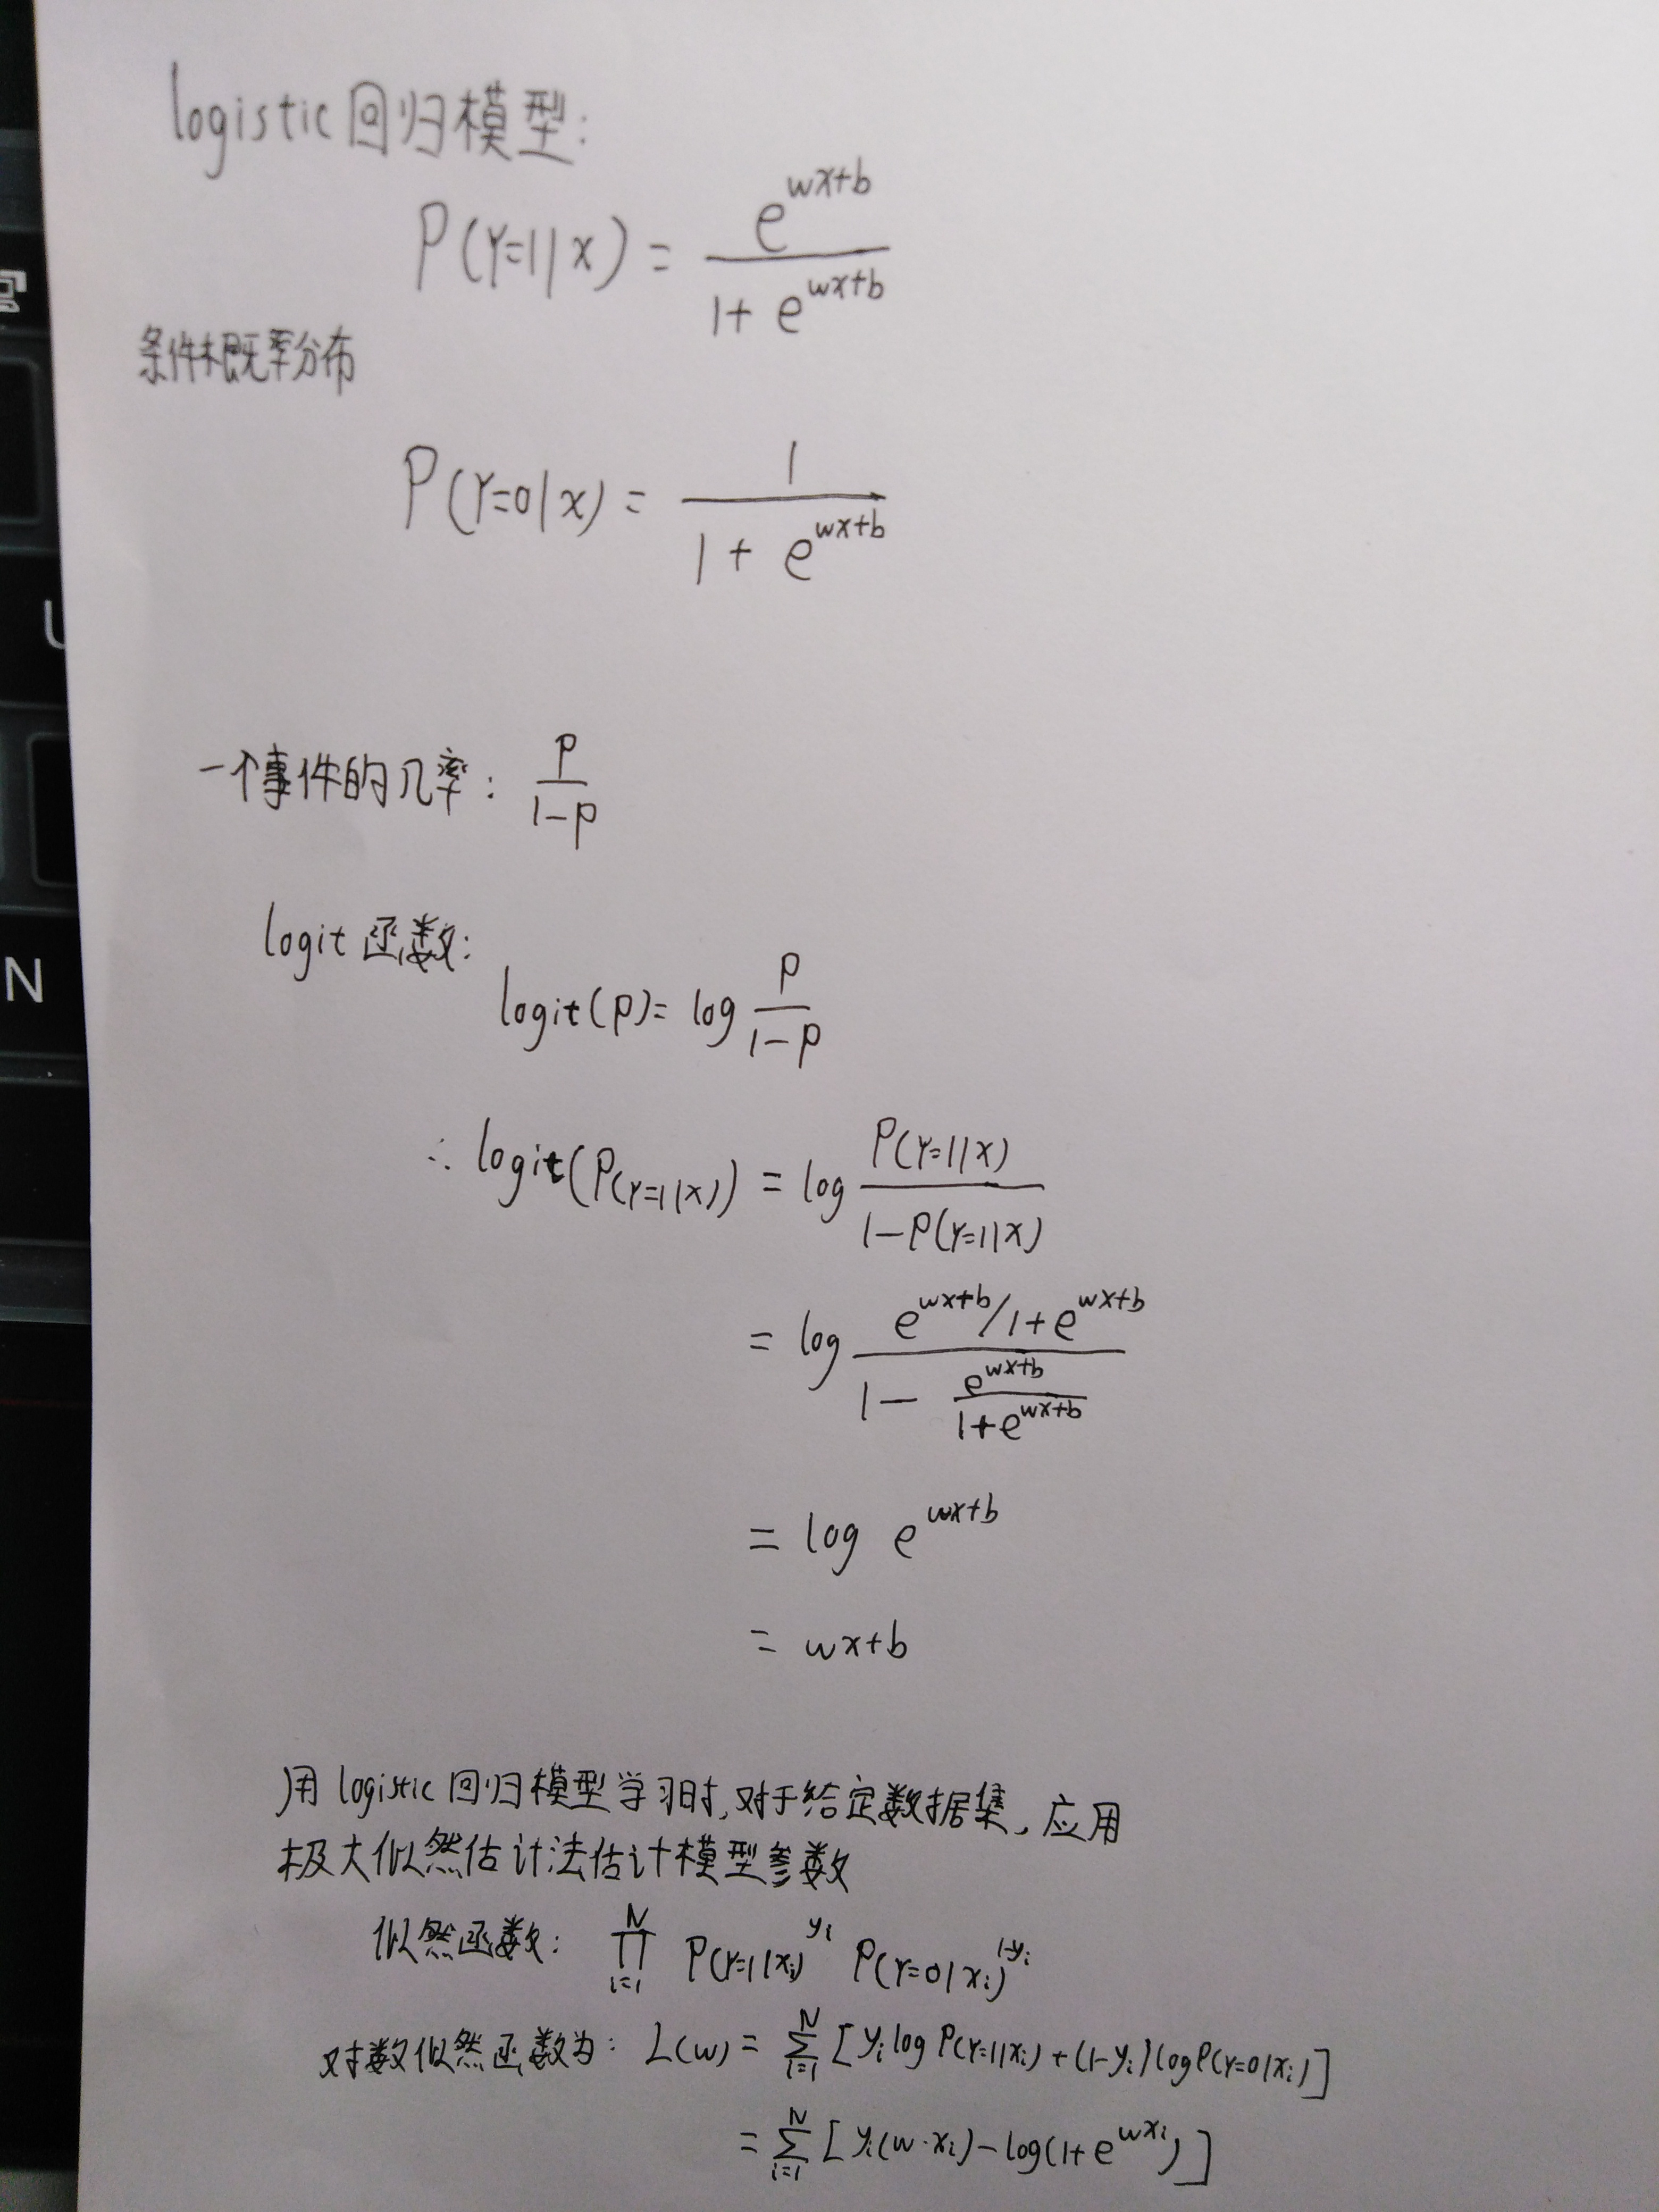 logistic 回归模型:
P(Y=1|x) = e^{wx+b} / (1 + e^{wx+b})
条件概率分布
P(Y=0|x) = 1 / (1 + e^{wx+b})
一个事件的几率: p / (1-p)
U
logit 函数:
N
logit(p) = log p / (1-p)
∴ logit(P(Y=1|x)) = log P(Y=1|x) / (1-P(Y=1|x))
= log (e^{wx+b}/1+e^{wx+b}) / (1 - e^{wx+b} / (1+e^{wx+b}))
= log e^{wx+b}
= wx+b
用 logistic 回归模型学习时,对于给定数据集,应用
极大似然估计法估计模型参数
似然函数: ∏_{i=1}^{N} P(Y=1|x_i)^{y_i} P(Y=0|x_i)^{1-y_i}
对数似然函数为: L(w) = ∑_{i=1}^{N} [y_i log P(Y=1|x_i) + (1-y_i) log P(Y=0|x_i)]
= ∑_{i=1}^{N} [y_i(w·x_i) - log(1+e^{wx_i})]